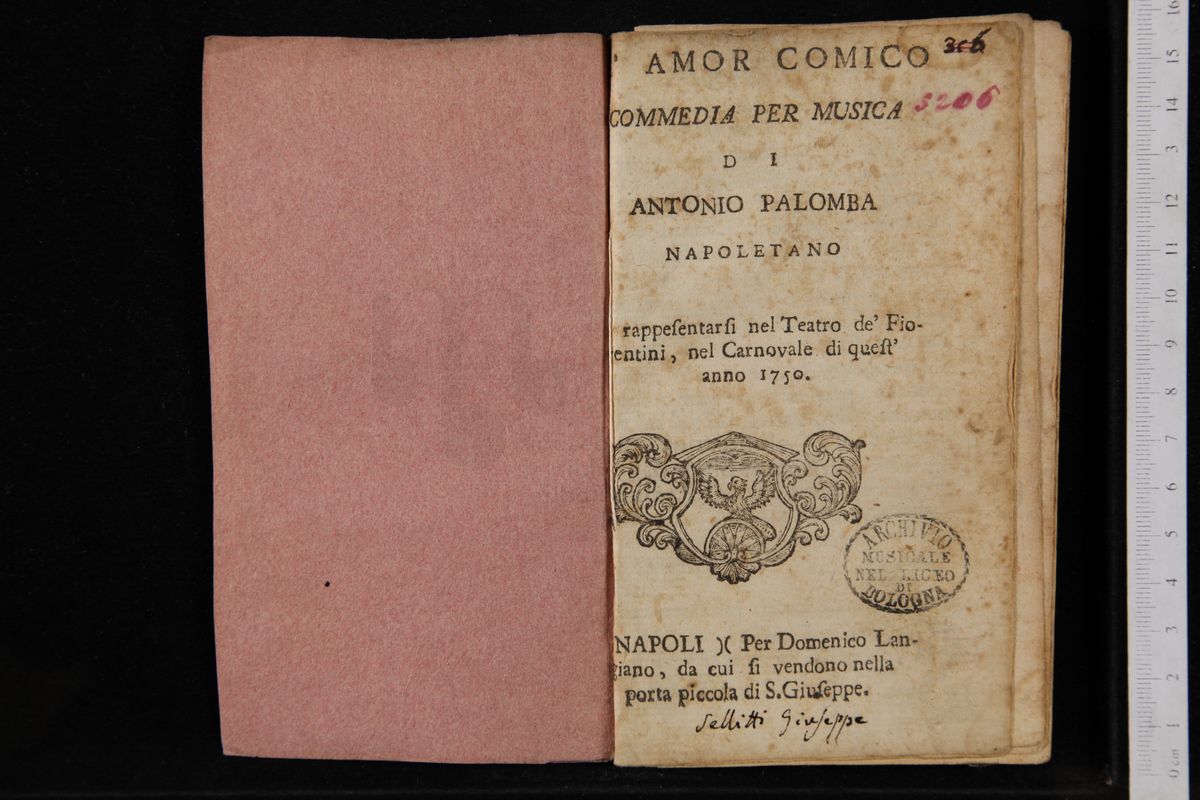 ' AMOR COMICO 306
COMMEDIA PER MUSICA 5206
D I
ANTONIO PALOMBA
NAPOLETANO
rappeſentarſi nel Teatro de' Fio-
entini, nel Carnovale di queſt'
anno 1750.
ARCHIVIO
MUSICALE
NEL LICEO
DI
BOLOGNA
NAPOLI )( Per Domenico Lan-
giano, da cui ſi vendono nella
porta piccola di S.Giuſeppe.
Sellitti Giuſeppe
0 cm 1 2 3 4 5 6 7 8 9 10 11 12 13 14 15 16